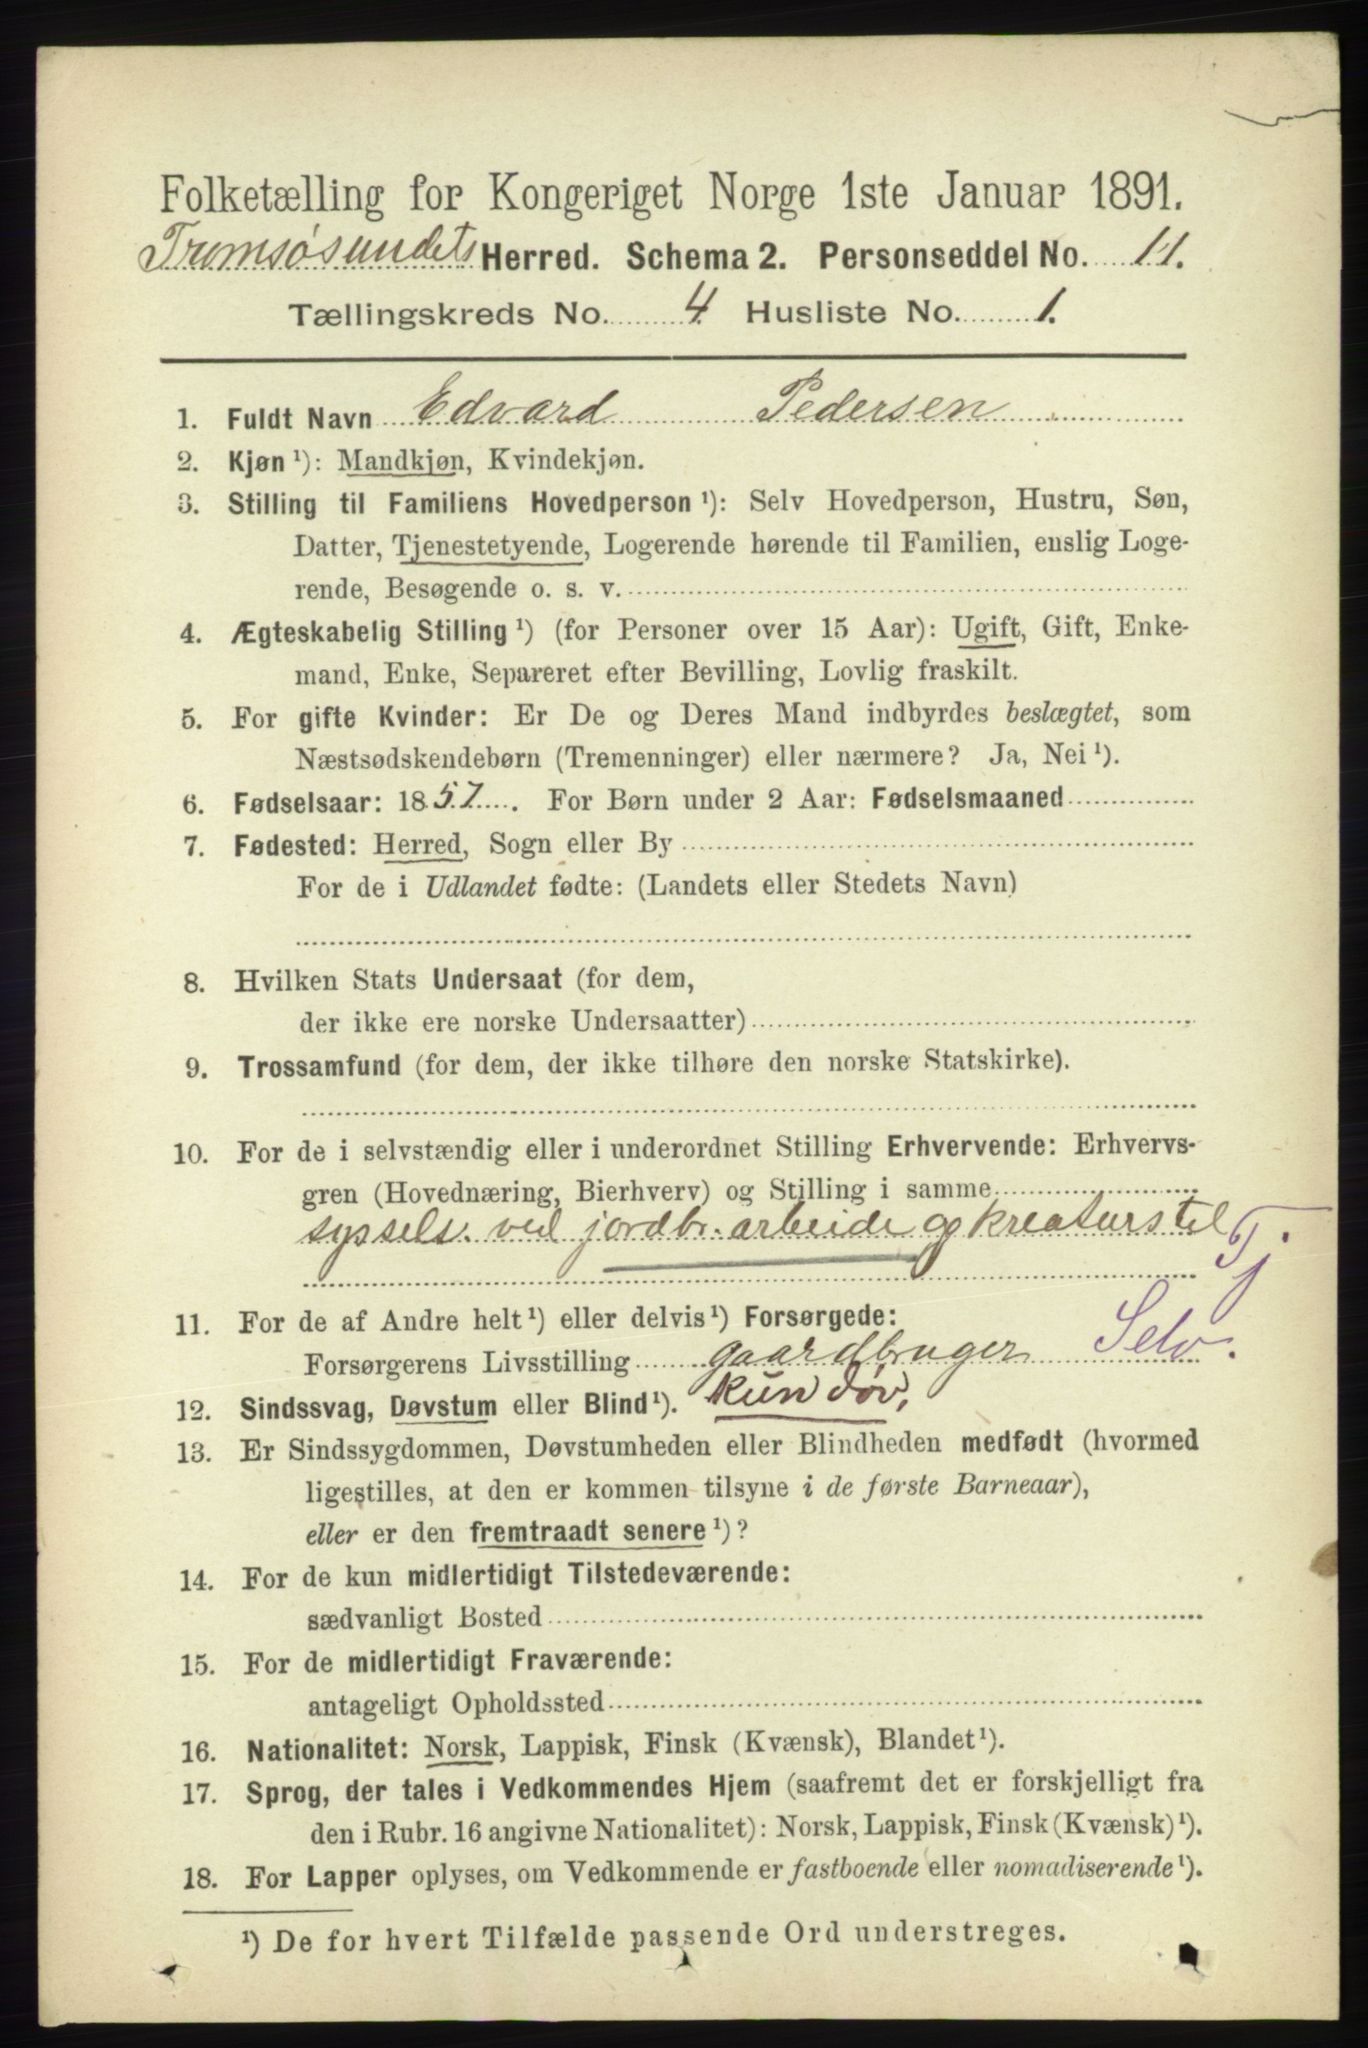 Folketælling for Kongeriget Norge 1ste Januar 1891.
Tromsøsundets Herred. Schema 2. Personseddel No. 11.
Tællingskreds No. 4. Husliste No. 1.
1. Fuldt Navn Edvard Pedersen
2. Kjøn ¹): Mandkjøn, Kvindekjøn.
3. Stilling til Familiens Hovedperson ¹): Selv Hovedperson, Hustru, Søn,
Datter, Tjenestetyende, Logerende hørende til Familien, enslig Loge-
rende, Besøgende o. s. v.
4. Ægteskabelig Stilling ¹) (for Personer over 15 Aar): Ugift, Gift, Enke-
mand, Enke, Separeret efter Bevilling, Lovlig fraskilt.
5. For gifte Kvinder: Er De og Deres Mand indbyrdes beslægtet, som
Næstsødskendebørn (Tremenninger) eller nærmere? Ja, Nei ¹).
6. Fødselsaar: 1857. For Børn under 2 Aar: Fødselsmaaned
7. Fødested: Herred, Sogn eller By
For de i Udlandet fødte: (Landets eller Stedets Navn)
8. Hvilken Stats Undersaat (for dem,
der ikke ere norske Undersaatter)
9. Trossamfund (for dem, der ikke tilhøre den norske Statskirke).
10. For de i selvstændig eller i underordnet Stilling Erhvervende: Erhvervs-
gren (Hovednæring, Bierhverv) og Stilling i samme
syssels. ved jordbr. arbeide og kreaturstel
Tj
11. For de af Andre helt ¹) eller delvis ¹) Forsørgede:
Forsørgerens Livsstilling gaardbruger Selv.
12. Sindssvag, Døvstum eller Blind ¹). kun døv.
13. Er Sindssygdommen, Døvstumheden eller Blindheden medfødt (hvormed
ligestilles, at den er kommen tilsyne i de første Barneaar),
eller er den fremtraadt senere ¹)?
14. For de kun midlertidigt Tilstedeværende:
sædvanligt Bosted
15. For de midlertidigt Fraværende:
antageligt Opholdssted
16. Nationalitet: Norsk, Lappisk, Finsk (Kvænsk), Blandet ¹).
17. Sprog, der tales i Vedkommendes Hjem (saafremt det er forskjelligt fra
den i Rubr. 16 angivne Nationalitet): Norsk, Lappisk, Finsk (Kvænsk) ¹).
18. For Lapper oplyses, om Vedkommende er fastboende eller nomadiserende ¹).
¹) De for hvert Tilfælde passende Ord understreges.